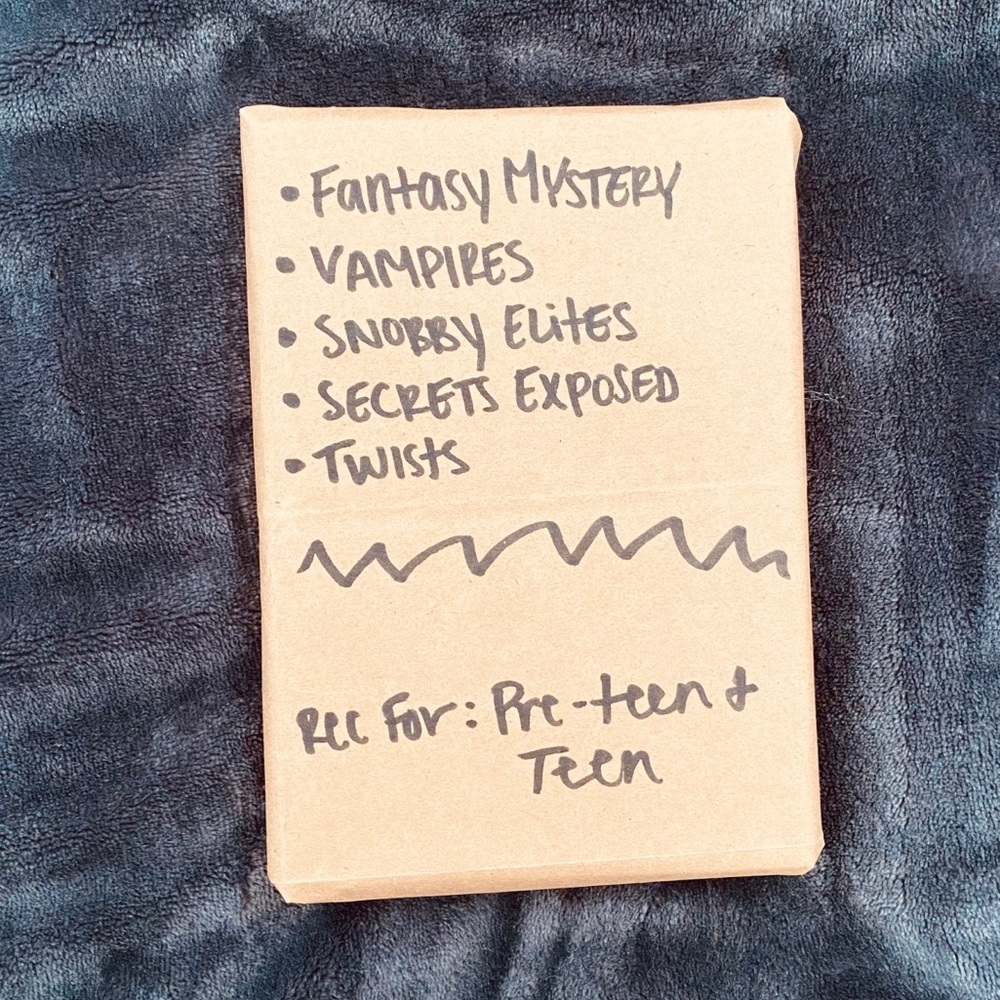 • Fantasy MYSTERY
• VAMPIRES
• SNOBBY ELitES
• SECRETS EXPOSED
• TWIStS
REC FOR: Pre-teen &
Teen